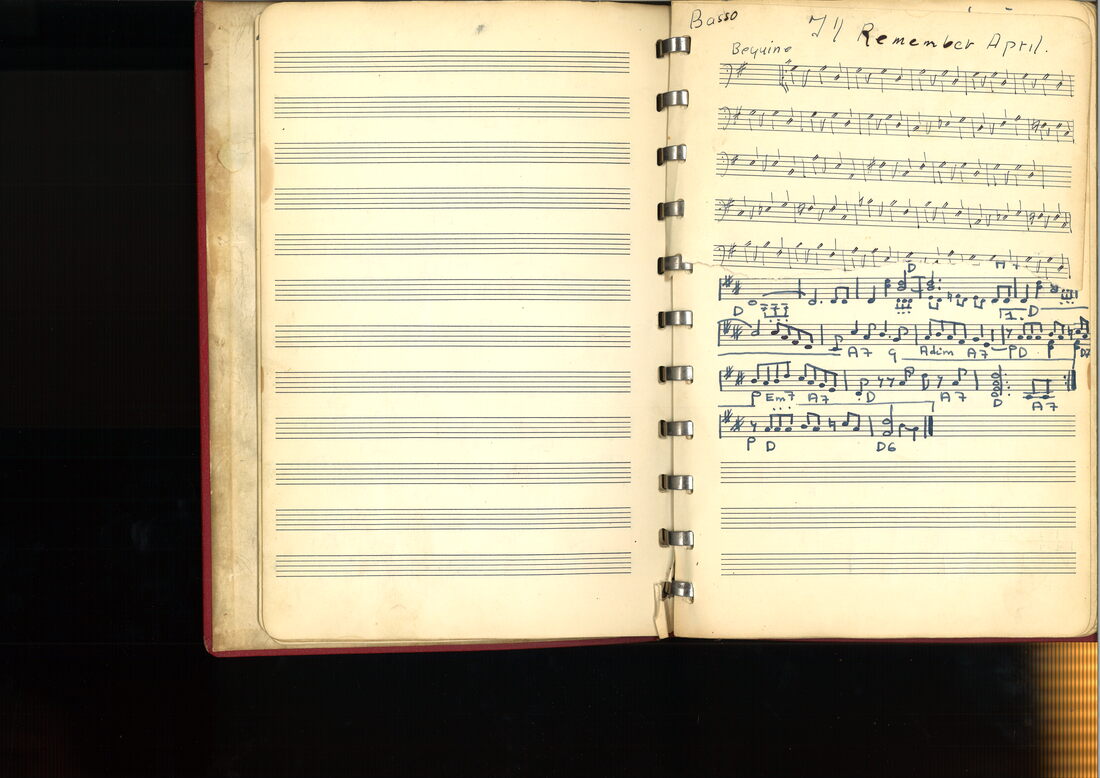 Basso
I'll Remember April.
Beguine
D
D
D
A7 G Adim A7 D D7
Em7 A7 D A7 D A7
D D6